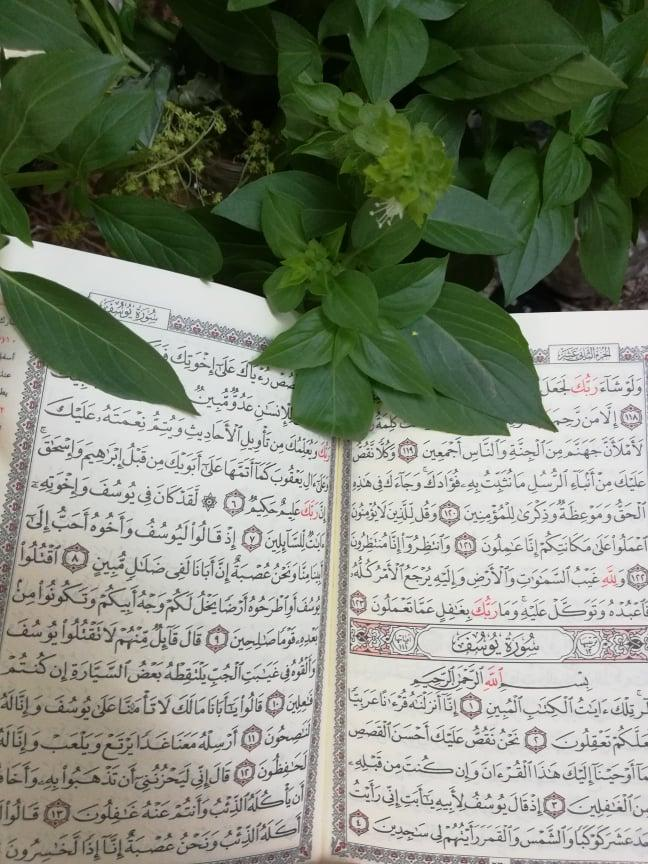 الجزء الثاني عشر
وَلَوْ شَآءَ رَبُّكَ لَجَعَلَ
١١٨ إِلَّا مَن رَّحِمَ كَلِمَةُ
لَأَمْلَأَنَّ جَهَنَّمَ مِنَ ٱلْجِنَّةِ وَٱلنَّاسِ أَجْمَعِينَ ١١٩ وَكُلًّا نَّقُصُّ
عَلَيْكَ مِنْ أَنۢبَآءِ ٱلرُّسُلِ مَا نُثَبِّتُ بِهِۦ فُؤَادَكَ ۚ وَجَآءَكَ فِى هَٰذِهِ
ٱلْحَقُّ وَمَوْعِظَةٌ وَذِكْرَىٰ لِلْمُؤْمِنِينَ ١٢٠ وَقُل لِّلَّذِينَ لَا يُؤْمِنُونَ
ٱعْمَلُوا۟ عَلَىٰ مَكَانَتِكُمْ إِنَّا عَٰمِلُونَ ١٢١ وَٱنتَظِرُوٓا۟ إِنَّا مُنتَظِرُونَ
١٢٢ وَلِلَّهِ غَيْبُ ٱلسَّمَٰوَٰتِ وَٱلْأَرْضِ وَإِلَيْهِ يُرْجَعُ ٱلْأَمْرُ كُلُّهُۥ
فَٱعْبُدْهُ وَتَوَكَّلْ عَلَيْهِ ۚ وَمَا رَبُّكَ بِغَٰفِلٍ عَمَّا تَعْمَلُونَ ١٢٣
سُورَةُ يُوسُفَ
بِسْمِ ٱللَّهِ ٱلرَّحْمَٰنِ ٱلرَّحِيمِ
الٓر ۚ تِلْكَ ءَايَٰتُ ٱلْكِتَٰبِ ٱلْمُبِينِ ١ إِنَّآ أَنزَلْنَٰهُ قُرْءَٰنًا عَرَبِيًّا
لَّعَلَّكُمْ تَعْقِلُونَ ٢ نَحْنُ نَقُصُّ عَلَيْكَ أَحْسَنَ ٱلْقَصَصِ
بِمَآ أَوْحَيْنَآ إِلَيْكَ هَٰذَا ٱلْقُرْءَانَ وَإِن كُنتَ مِن قَبْلِهِۦ
لَمِنَ ٱلْغَٰفِلِينَ ٣ إِذْ قَالَ يُوسُفُ لِأَبِيهِ يَٰٓأَبَتِ إِنِّى رَأَيْتُ
أَحَدَ عَشَرَ كَوْكَبًا وَٱلشَّمْسَ وَٱلْقَمَرَ رَأَيْتُهُمْ لِى سَٰجِدِينَ ٤
سُورَةُ يُوسُفَ
تَقْصُصْ رُءْيَاكَ عَلَىٰٓ إِخْوَتِكَ
لِلْإِنسَٰنِ عَدُوٌّ مُّبِينٌ
رَبُّكَ وَيُعَلِّمُكَ مِن تَأْوِيلِ ٱلْأَحَادِيثِ وَيُتِمُّ نِعْمَتَهُۥ عَلَيْكَ
وَعَلَىٰٓ ءَالِ يَعْقُوبَ كَمَآ أَتَمَّهَا عَلَىٰٓ أَبَوَيْكَ مِن قَبْلُ إِبْرَٰهِيمَ وَإِسْحَٰقَ ۚ
إِنَّ رَبَّكَ عَلِيمٌ حَكِيمٌ ٦ ۞ لَّقَدْ كَانَ فِى يُوسُفَ وَإِخْوَتِهِۦٓ
ءَايَٰتٌ لِّلسَّآئِلِينَ ٧ إِذْ قَالُوا۟ لَيُوسُفُ وَأَخُوهُ أَحَبُّ إِلَىٰٓ
أَبِينَا مِنَّا وَنَحْنُ عُصْبَةٌ إِنَّ أَبَانَا لَفِى ضَلَٰلٍ مُّبِينٍ ٨ ٱقْتُلُوا۟
يُوسُفَ أَوِ ٱطْرَحُوهُ أَرْضًا يَخْلُ لَكُمْ وَجْهُ أَبِيكُمْ وَتَكُونُوا۟ مِنۢ
بَعْدِهِۦ قَوْمًا صَٰلِحِينَ ٩ قَالَ قَآئِلٌ مِّنْهُمْ لَا تَقْتُلُوا۟ يُوسُفَ
وَأَلْقُوهُ فِى غَيَٰبَتِ ٱلْجُبِّ يَلْتَقِطْهُ بَعْضُ ٱلسَّيَّارَةِ إِن كُنتُمْ
فَٰعِلِينَ ١٠ قَالُوا۟ يَٰٓأَبَانَا مَالَكَ لَا تَأْمَ۫نَّا عَلَىٰ يُوسُفَ وَإِنَّا لَهُۥ
لَنَٰصِحُونَ ١١ أَرْسِلْهُ مَعَنَا غَدًا يَرْتَعْ وَيَلْعَبْ وَإِنَّا لَهُۥ
لَحَٰفِظُونَ ١٢ قَالَ إِنِّى لَيَحْزُنُنِىٓ أَن تَذْهَبُوا۟ بِهِۦ وَأَخَافُ
أَن يَأْكُلَهُ ٱلذِّئْبُ وَأَنتُمْ عَنْهُ غَٰفِلُونَ ١٣ قَالُوا۟
أَكَلَهُ ٱلذِّئْبُ وَنَحْنُ عُصْبَةٌ إِنَّآ إِذًا لَّخَٰسِرُونَ